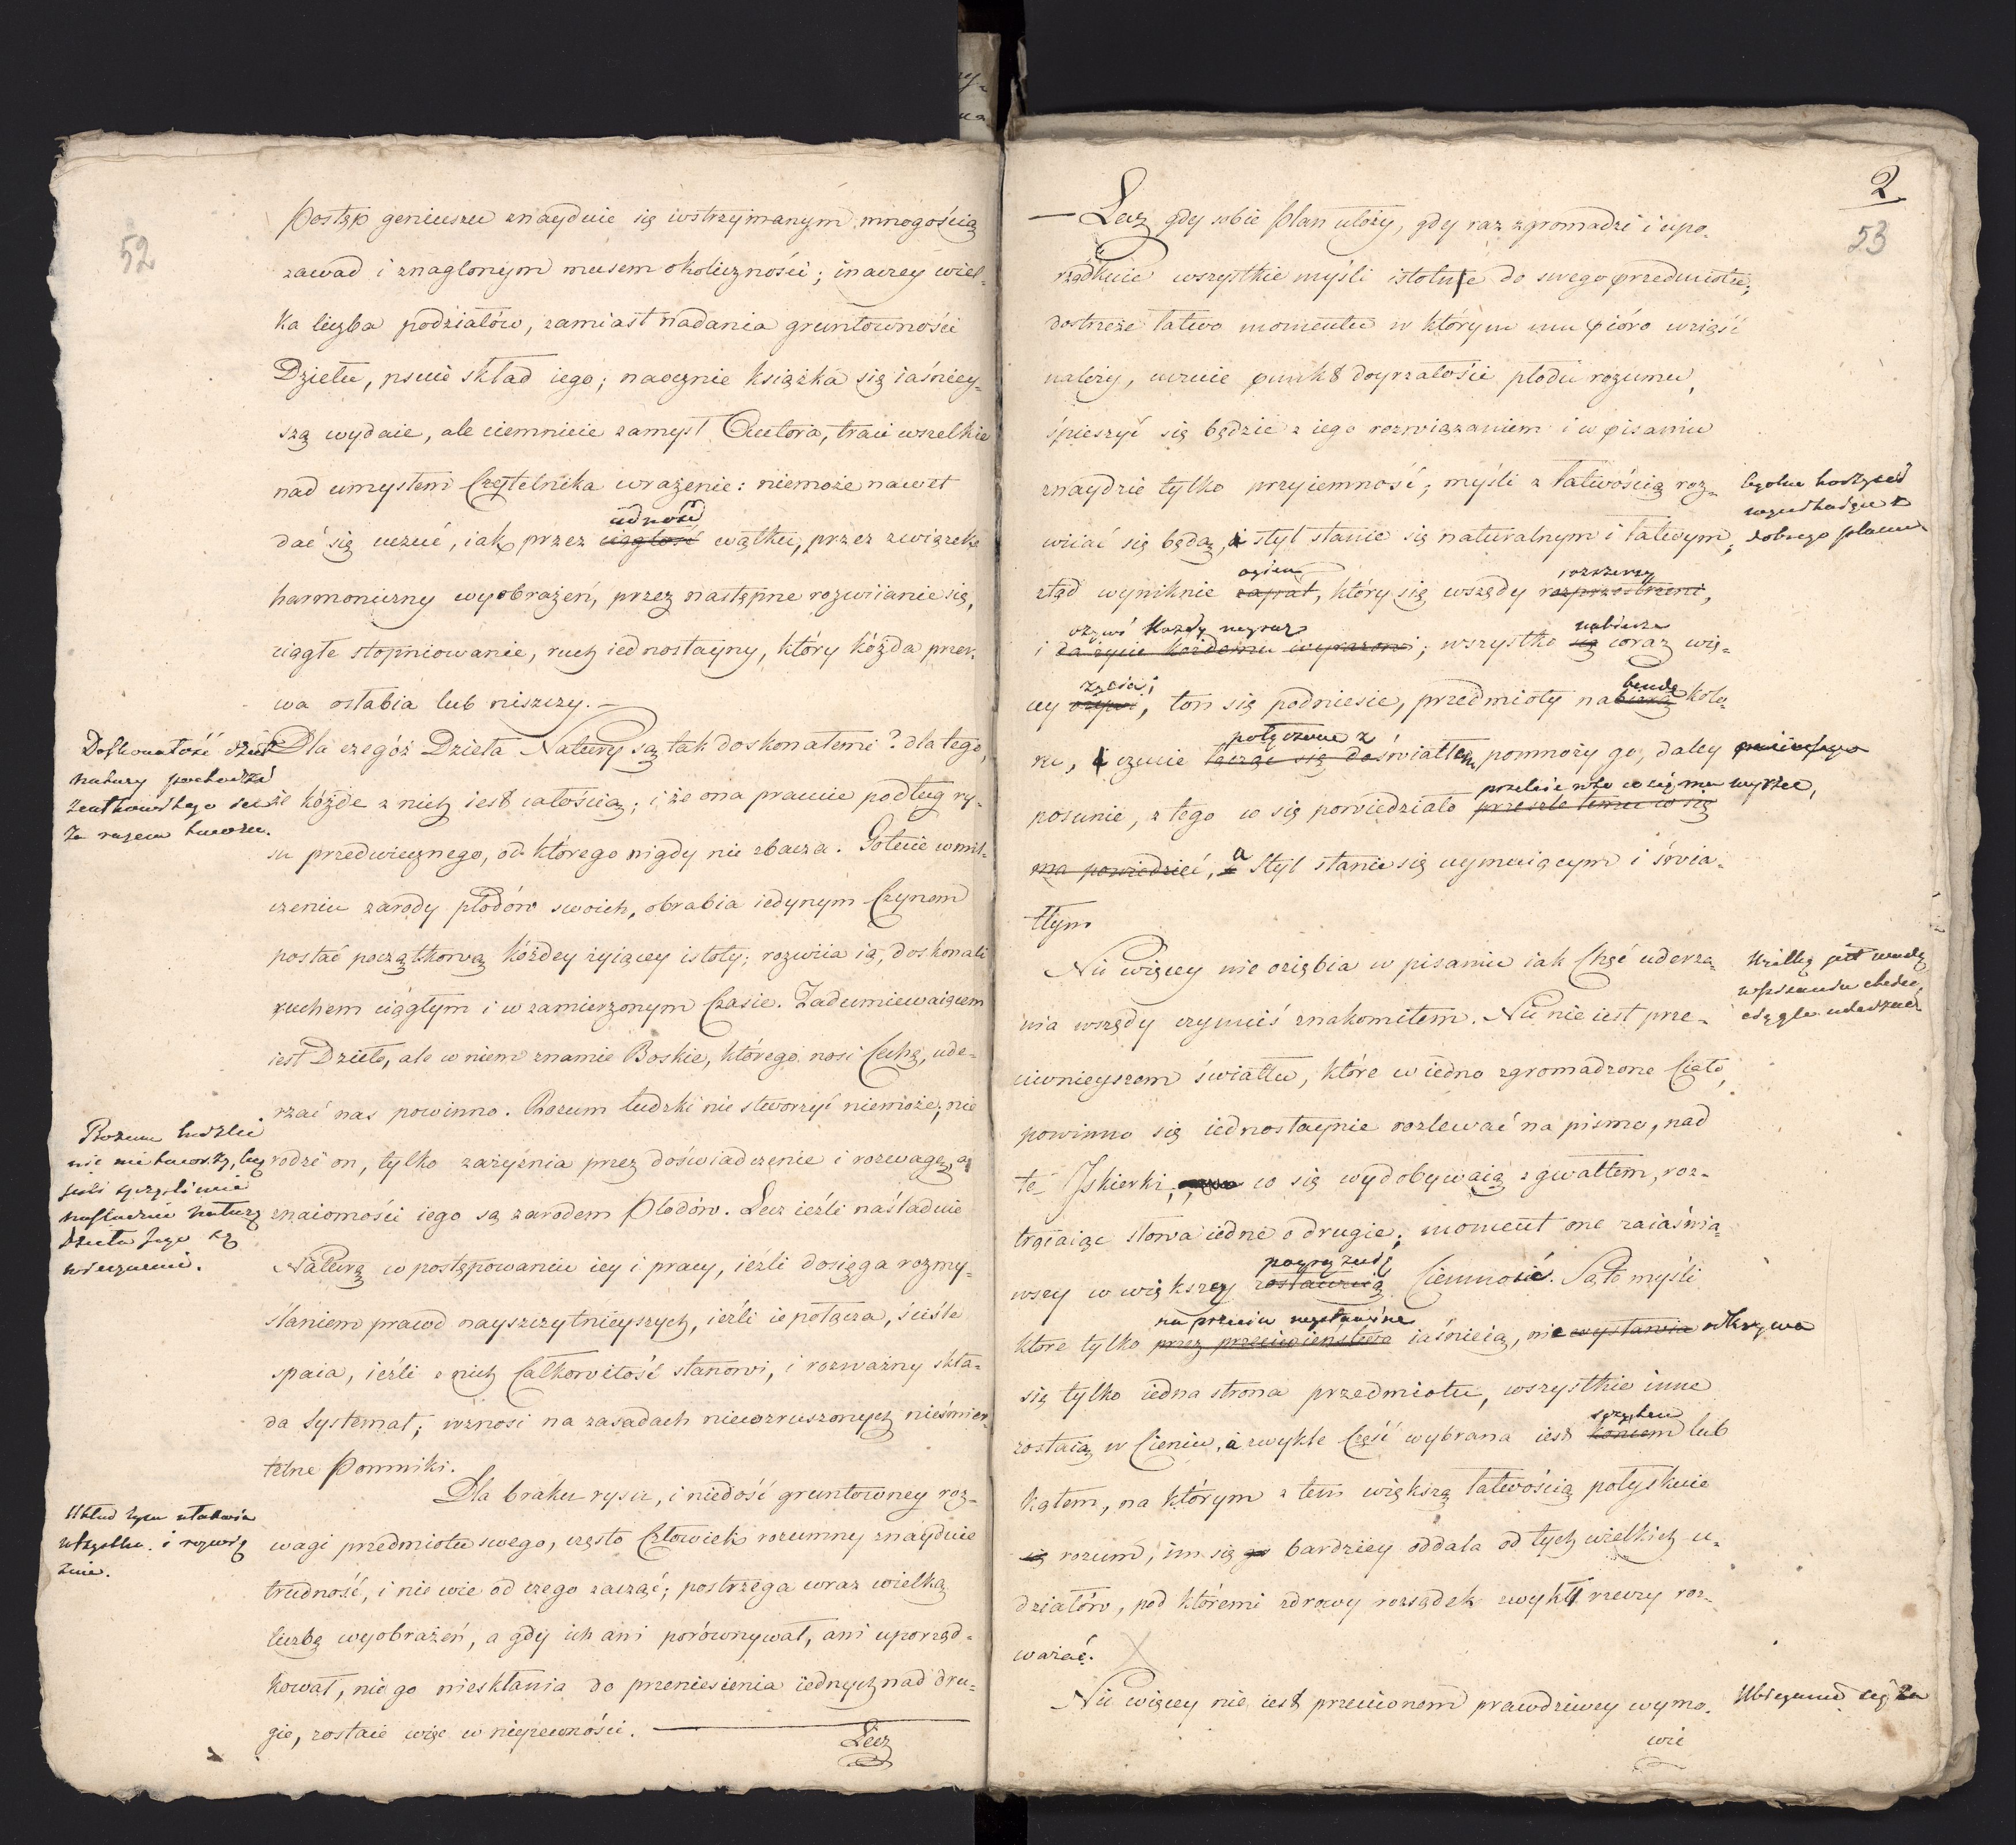 52
Postęp geniuszu znayduie się wstrzymanym mnogością
zawad i znaglonym musem okoliczności; inaczey wiel-
ka liczba podziałów, zamiast nadania gruntowności
Dziełu, psuie skład iego; naocznie książka się iaśniey-
szą wydaie, ale ciemnieie zamysł Autora, traci wszelkie
nad umysłem Czytelnika wrażenie: niemoże nawet
iedność
dać się uczuć, iak przez ciągłość wątku, przez związek
harmoniczny wyobrażeń, przez następne rozwiianie się,
ciągłe stopniowanie, ruch iednostayny, który kóżda przer-
wa osłabia lub niszczy. —
Doskonałość dzieł
natury pochodzi
że razem tworzu.
Dla czegóż Dzieła Natury są tak doskonałemi? dla tego,
że kóżde z nich iest całością; i że ona pracuie podług ry-
su przedwiecznego, od którego nigdy nie zbacza. Gotuie w mil-
czeniu zarody płodów swoich, obrabia iedynym Czynem
postać początkową kóżdey żyiącey istoty; rozwiia ią, doskonali
ruchem ciągłym i w zamierzonym Czasie. Zadumiewaiącem
iest Dzieło, ale w niem znamie Boskie, którego nosi Cechę, ude-
rzać nas powinno. Rozum ludzki nic stworzyć niemoże; nie
Rozum ludzki
nic nie tworzy, lecz
jeśli szczęśliwie
naśladuie naturę
dzieła jego są
wiecznemi.
rodzi on, tylko zażyźnia przez doświadczenie i rozwagę, a
znaiomości iego są zarodem Płodów. Lecz ieźli naśladuie
Naturę w postępowaniu iey i pracy, ieźli dosięga rozmy-
ślaniem prawd nayszczytnieyszych, ieźli ie połącza, ściśle
spaia, ieźli z nich Całkowitość stanowi, i rozważny skła-
da Systemat; wznosi na zasadach niewzruszonych nieśmier-
telne Pomniki.
Układ
wszystko i rozwią
zuie.
Dla braku rysu, i niedość gruntowney roz-
wagi przedmiotu swego, często Człowiek rozumny znayduie
trudność, i nie wie od czego zacząć; postrzega wraz wielką
liczbę wyobrażeń, a gdy ich ani porównywał, ani uporząd-
kował, nic go nieskłania do przeniesienia iednych nad dru-
gie, zostaie więc w niepewności. —
Lecz
2
53
— Lecz gdy sobie Plan ułoży, gdy raz zgromadzi i upo-
rządkuie wszystkie myśli istotne do swego przedmiotu;
dostrzeże łatwo momentu w którym mu pióro wziąść
należy, uczuie punkt doyrzałości płodu rozumu,
śpieszyć się będzie z iego rozwiązaniem i w pisaniu
znaydzie tylko przyiemność; myśli z łatwością roz-
wiiać się będą, i styl stanie się naturalnym i łatwym;
dobrego planu
ogień rozszerzy
ztąd wyniknie zapał, który się wszędy rozprzestrzeni,
ożywi każdy wyraz nabierze
i da życie każdemu wyrazowi; wszystko się coraz wię-
życia; będą
cey ożywi, ton się podniesie, przedmioty nabiorą kolo-
połączone z
ru, i czucie łącząc się do światłem pomnoży go, daley
przeleie w to co się ma wyrzec,
posunie, z tego co się powiedziało przeszle temu co się
ma powiedzieć, a Styl stanie się uymuiącym i świa-
tłym
Nic więcey nie oziębia w pisaniu iak Chęć uderze-
nia wszędy czymsiś znakomitem. Nic nie iest prze-
ciwnieyszem światłu, które w iedno zgromadzone Ciało,
powinno się iednostaynie rozlewać na pismo, nad
te Iskierki, co się wydobywaią z gwałtem, roz-
trącaiąc słowa iedne o drugie; moment one zaiaśnia-
pogrążaią
wszy w większey zostawuią Ciemność. Są to myśli
na przeciw wystawione
które tylko przez przeciwieństwa iaśnieią, nie wystawia odkrywa
się tylko iedna strona przedmiotu, wszystkie inne
zostaią w Cieniu, a zwykle Część wybrana iest końcem lub
kątem, na którym z tem większą łatwością połyskuie
się rozum, im się go bardziey oddala od tych wielkich u-
działów, pod któremi zdrowy rozsądek zwykł rzeczy roz-
ważać.
Wielką jest wadą
w pisaniu chcieć
ciągle uderzać
Nic więcey nie iest przeciwnem prawdziwey wymo-
Ubieganie się za
wie